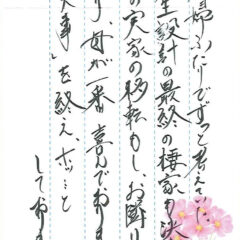 婦ふたりでずっと暮らそうに
生設計の最終の棲家も決
の実家の移転もし、お隣り
り、母が一番喜んでおりま
大事』を終えホッと
しており